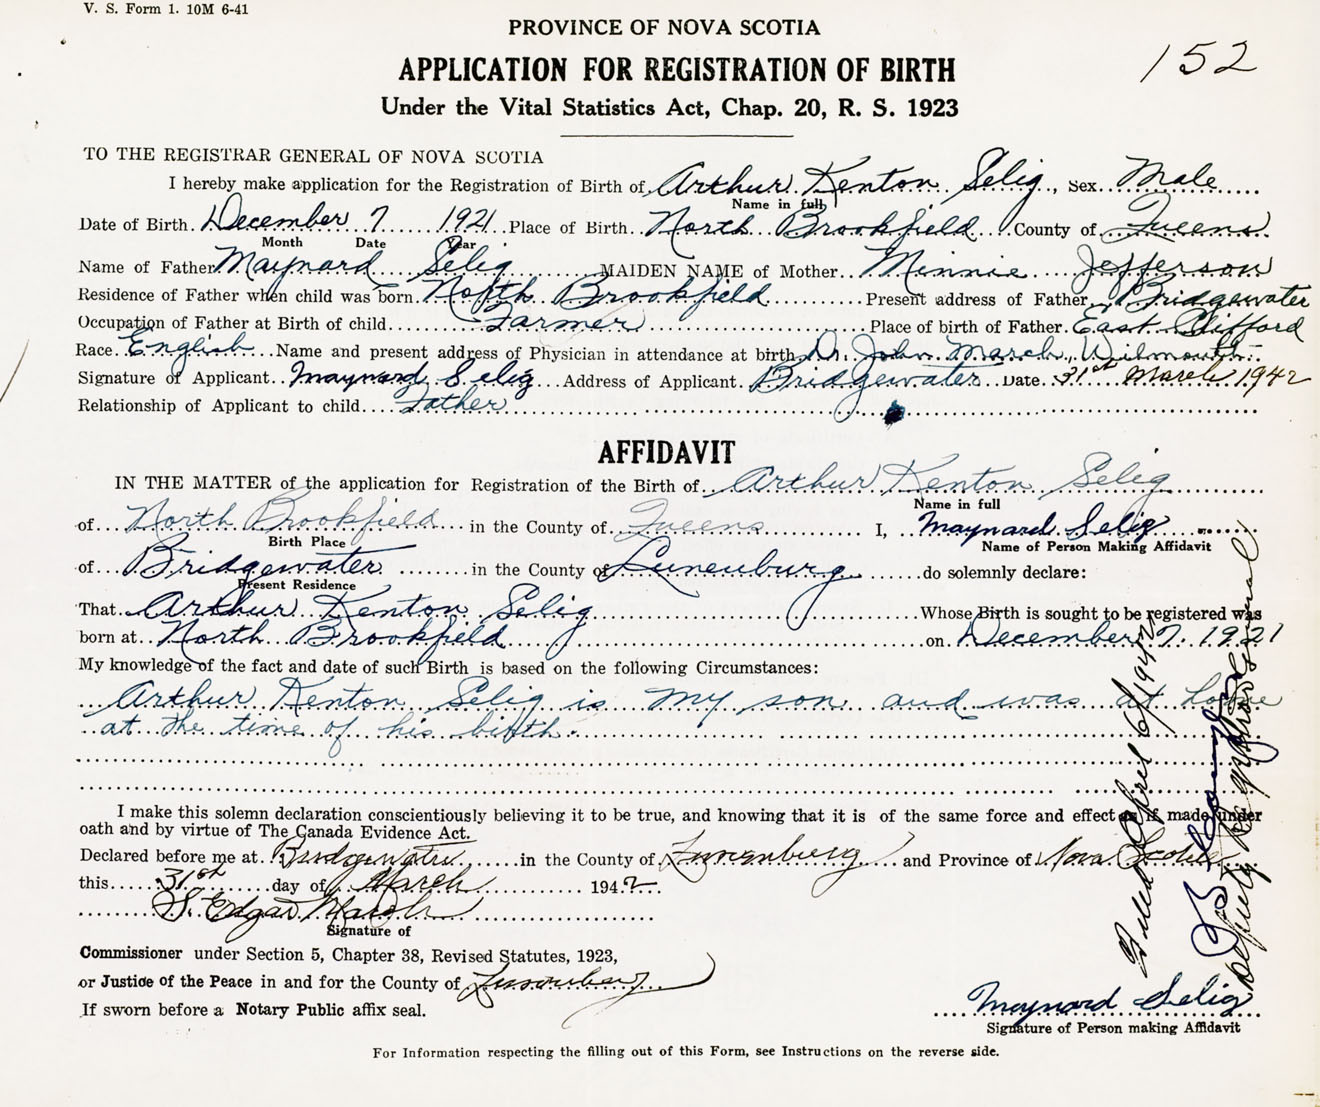 V. S. Form 1. 10M 6-41
PROVINCE OF NOVA SCOTIA
152
APPLICATION FOR REGISTRATION OF BIRTH
Under the Vital Statistics Act, Chap. 20, R. S. 1923
TO THE REGISTRAR GENERAL OF NOVA SCOTIA
I hereby make application for the Registration of Birth of Arthur Kenton Selig, Sex Male
Name in full
Date of Birth December 7 1921 Place of Birth North Brookfield County of Queens
Month Date Year
Name of Father Maynard Selig MAIDEN NAME of Mother Minnie Jefferson
Residence of Father when child was born North Brookfield Present address of Father Bridgewater
Occupation of Father at Birth of child Farmer Place of birth of Father East Clifford
Race English Name and present address of Physician in attendance at birth Dr. John March, Wilmouth
Signature of Applicant Maynard Selig Address of Applicant Bridgewater Date 31st March 1942
Relationship of Applicant to child Father
AFFIDAVIT
IN THE MATTER of the application for Registration of the Birth of Arthur Kenton Selig
Name in full
of North Brookfield in the County of Queens I, Maynard Selig
Birth Place Name of Person Making Affidavit
of Bridgewater in the County of Lunenburg do solemnly declare:
Present Residence
That Arthur Kenton Selig Whose Birth is sought to be registered was
born at North Brookfield on December 7. 1921
My knowledge of the fact and date of such Birth is based on the following Circumstances:
Arthur Kenton Selig is my son and was at home
at the time of his birth.
I make this solemn declaration conscientiously believing it to be true, and knowing that it is of the same force and effect as if made under
oath and by virtue of The Canada Evidence Act.
Declared before me at Bridgewater in the County of Lunenburg and Province of Nova Scotia
this 31st day of March 1942.
S. Edgar March
Signature of
Commissioner under Section 5, Chapter 38, Revised Statutes, 1923,
or Justice of the Peace in and for the County of Lunenburg
If sworn before a Notary Public affix seal.
Maynard Selig
Signature of Person making Affidavit
For Information respecting the filling out of this Form, see Instructions on the reverse side.
Filed April 6/1942
Deputy Registrar General